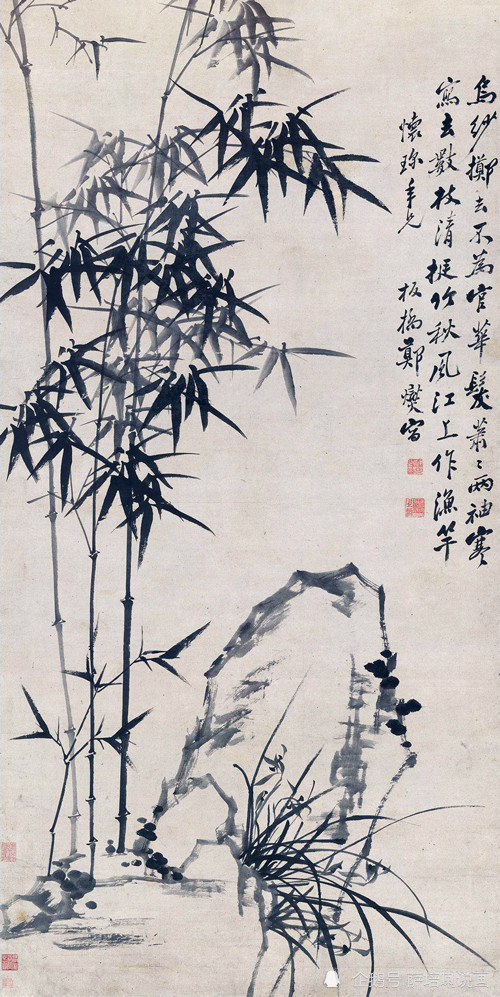 烏紗擲去不為官華髮蕭〻兩袖寒
寫去數枝清挺竹秋風江上作漁竿
懷 年兄
板橋鄭燮寫
企鹅号